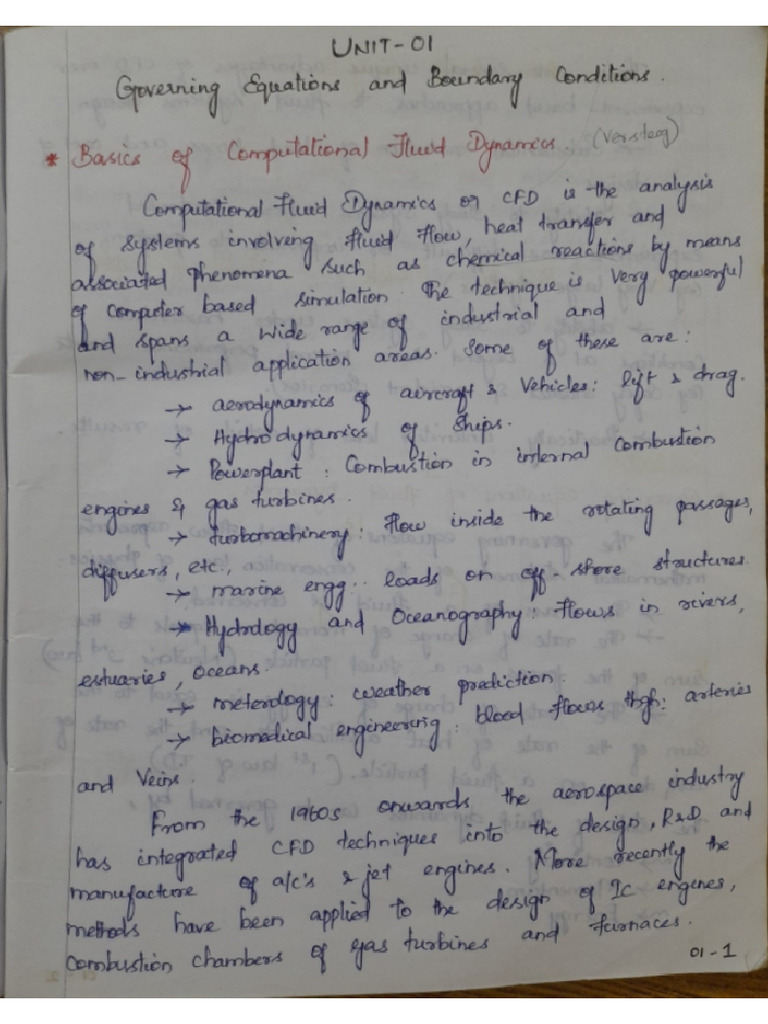 UNIT-01
Governing Equations and Boundary Conditions.
* Basics of Computational Fluid Dynamics. (Versteeg)
Computational Fluid Dynamics or CFD is the analysis
of systems involving fluid flow, heat transfer and
associated phenomena such as chemical reactions by means
of computer based simulation. The technique is very powerful
and spans a wide range of industrial and
non-industrial application areas. Some of these are:
→ aerodynamics of aircraft & vehicles: lift & drag.
→ Hydrodynamics of Ships.
→ Powerplant: Combustion in internal combustion
engines & gas turbines.
→ turbomachinery: flow inside the rotating passages,
diffusers, etc.,
→ marine engg.. loads on off-shore structures.
→ Hydrology and Oceanography: flows in rivers,
estuaries, oceans.
→ meterology: weather prediction.
→ biomedical engineering: blood flows thgh: arteries
and Veins.
From the 1960s onwards, the aerospace industry
has integrated CFD techniques into the design, R&D and
manufacture of a/c's & jet engines. More recently the
methods have been applied to the design of IC engenes,
combustion chambers of gas turbines and furnaces.
01-1